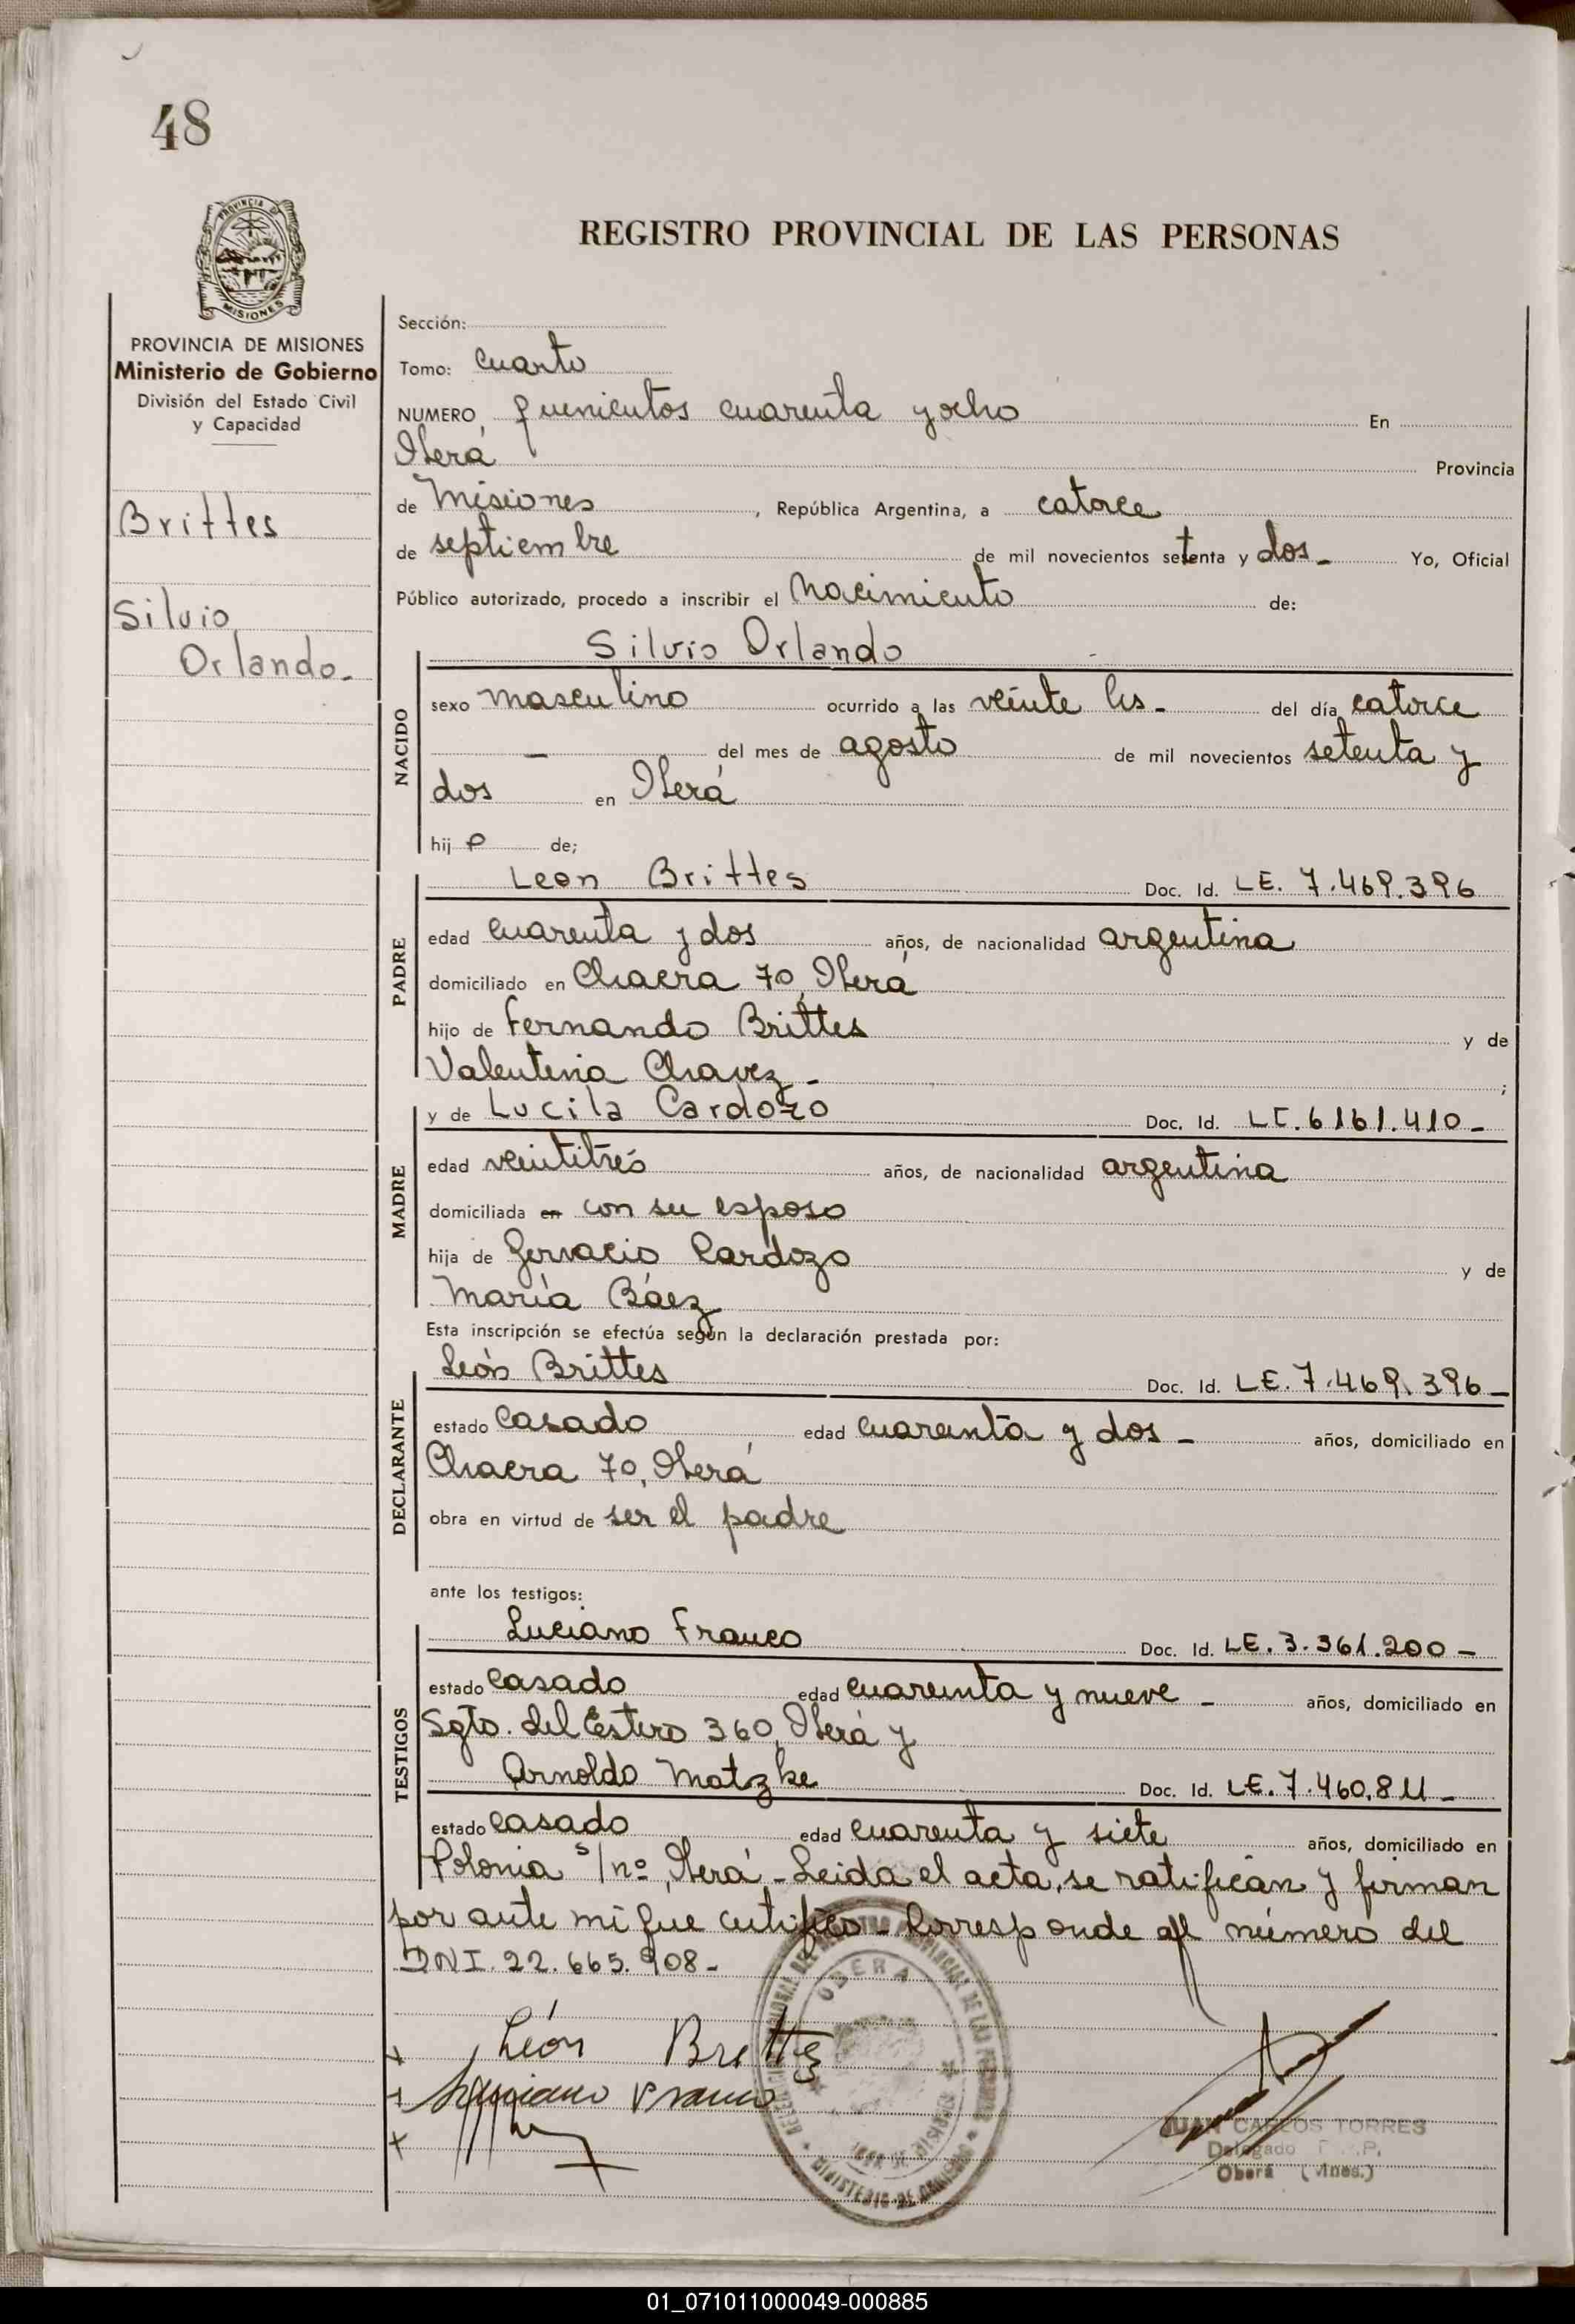 48
PROVINCIA DE
MISIONES
REGISTRO PROVINCIAL DE LAS PERSONAS
PROVINCIA DE MISIONES
Ministerio de Gobierno
División del Estado Civil
y Capacidad
Brittes
Silvio
Orlando.
Sección:
Tomo: Cuarto
NUMERO, quinientos cuarenta y ocho En
Oberá Provincia
de Misiones, República Argentina, a catorce
de septiembre de mil novecientos setenta y dos- Yo, Oficial
Público autorizado, procedo a inscribir el Nacimiento de:
Silvio Orlando
NACIDO
sexo masculino ocurrido a las veinte hs- del día catorce
- del mes de agosto de mil novecientos setenta y
dos en Oberá
hijo de;
PADRE
Leon Brittes Doc. Id. LE. 7.469.396
edad cuarenta y dos años, de nacionalidad argentina
domiciliado en Chacra 70, Oberá
hijo de Fernando Brittes y de
Valentina Chavez- ;
MADRE
y de Lucila Cardozo Doc. Id. LC. 6.161.410-
edad veintitrés años, de nacionalidad argentina
domiciliada en con su esposo
hija de Gervacio Cardozo y de
María Báez
Esta inscripción se efectúa según la declaración prestada por:
DECLARANTE
León Brittes Doc. Id. LE. 7.469.396-
estado Casado edad cuarenta y dos- años, domiciliado en
Chacra 70, Oberá
obra en virtud de ser el padre
ante los testigos:
TESTIGOS
Luciano Franco Doc. Id. LE. 3.361.200-
estado casado edad cuarenta y nueve- años, domiciliado en
Sgto. del Estero 360, Oberá y
Arnoldo Matzke Doc. Id. LE. 7.460.811-
estado casado edad cuarenta y siete años, domiciliado en
Polonia s/nº, Oberá- Leida el acta, se ratifican y firman
por ante mi que certifico- Corresponde al número del
DNI. 22.665.908-
OBERA
León Brittes
Luciano Franco
JUAN CARLOS TORRES
Delegado
Oberá (Mnes.)
01_071011000049-000885